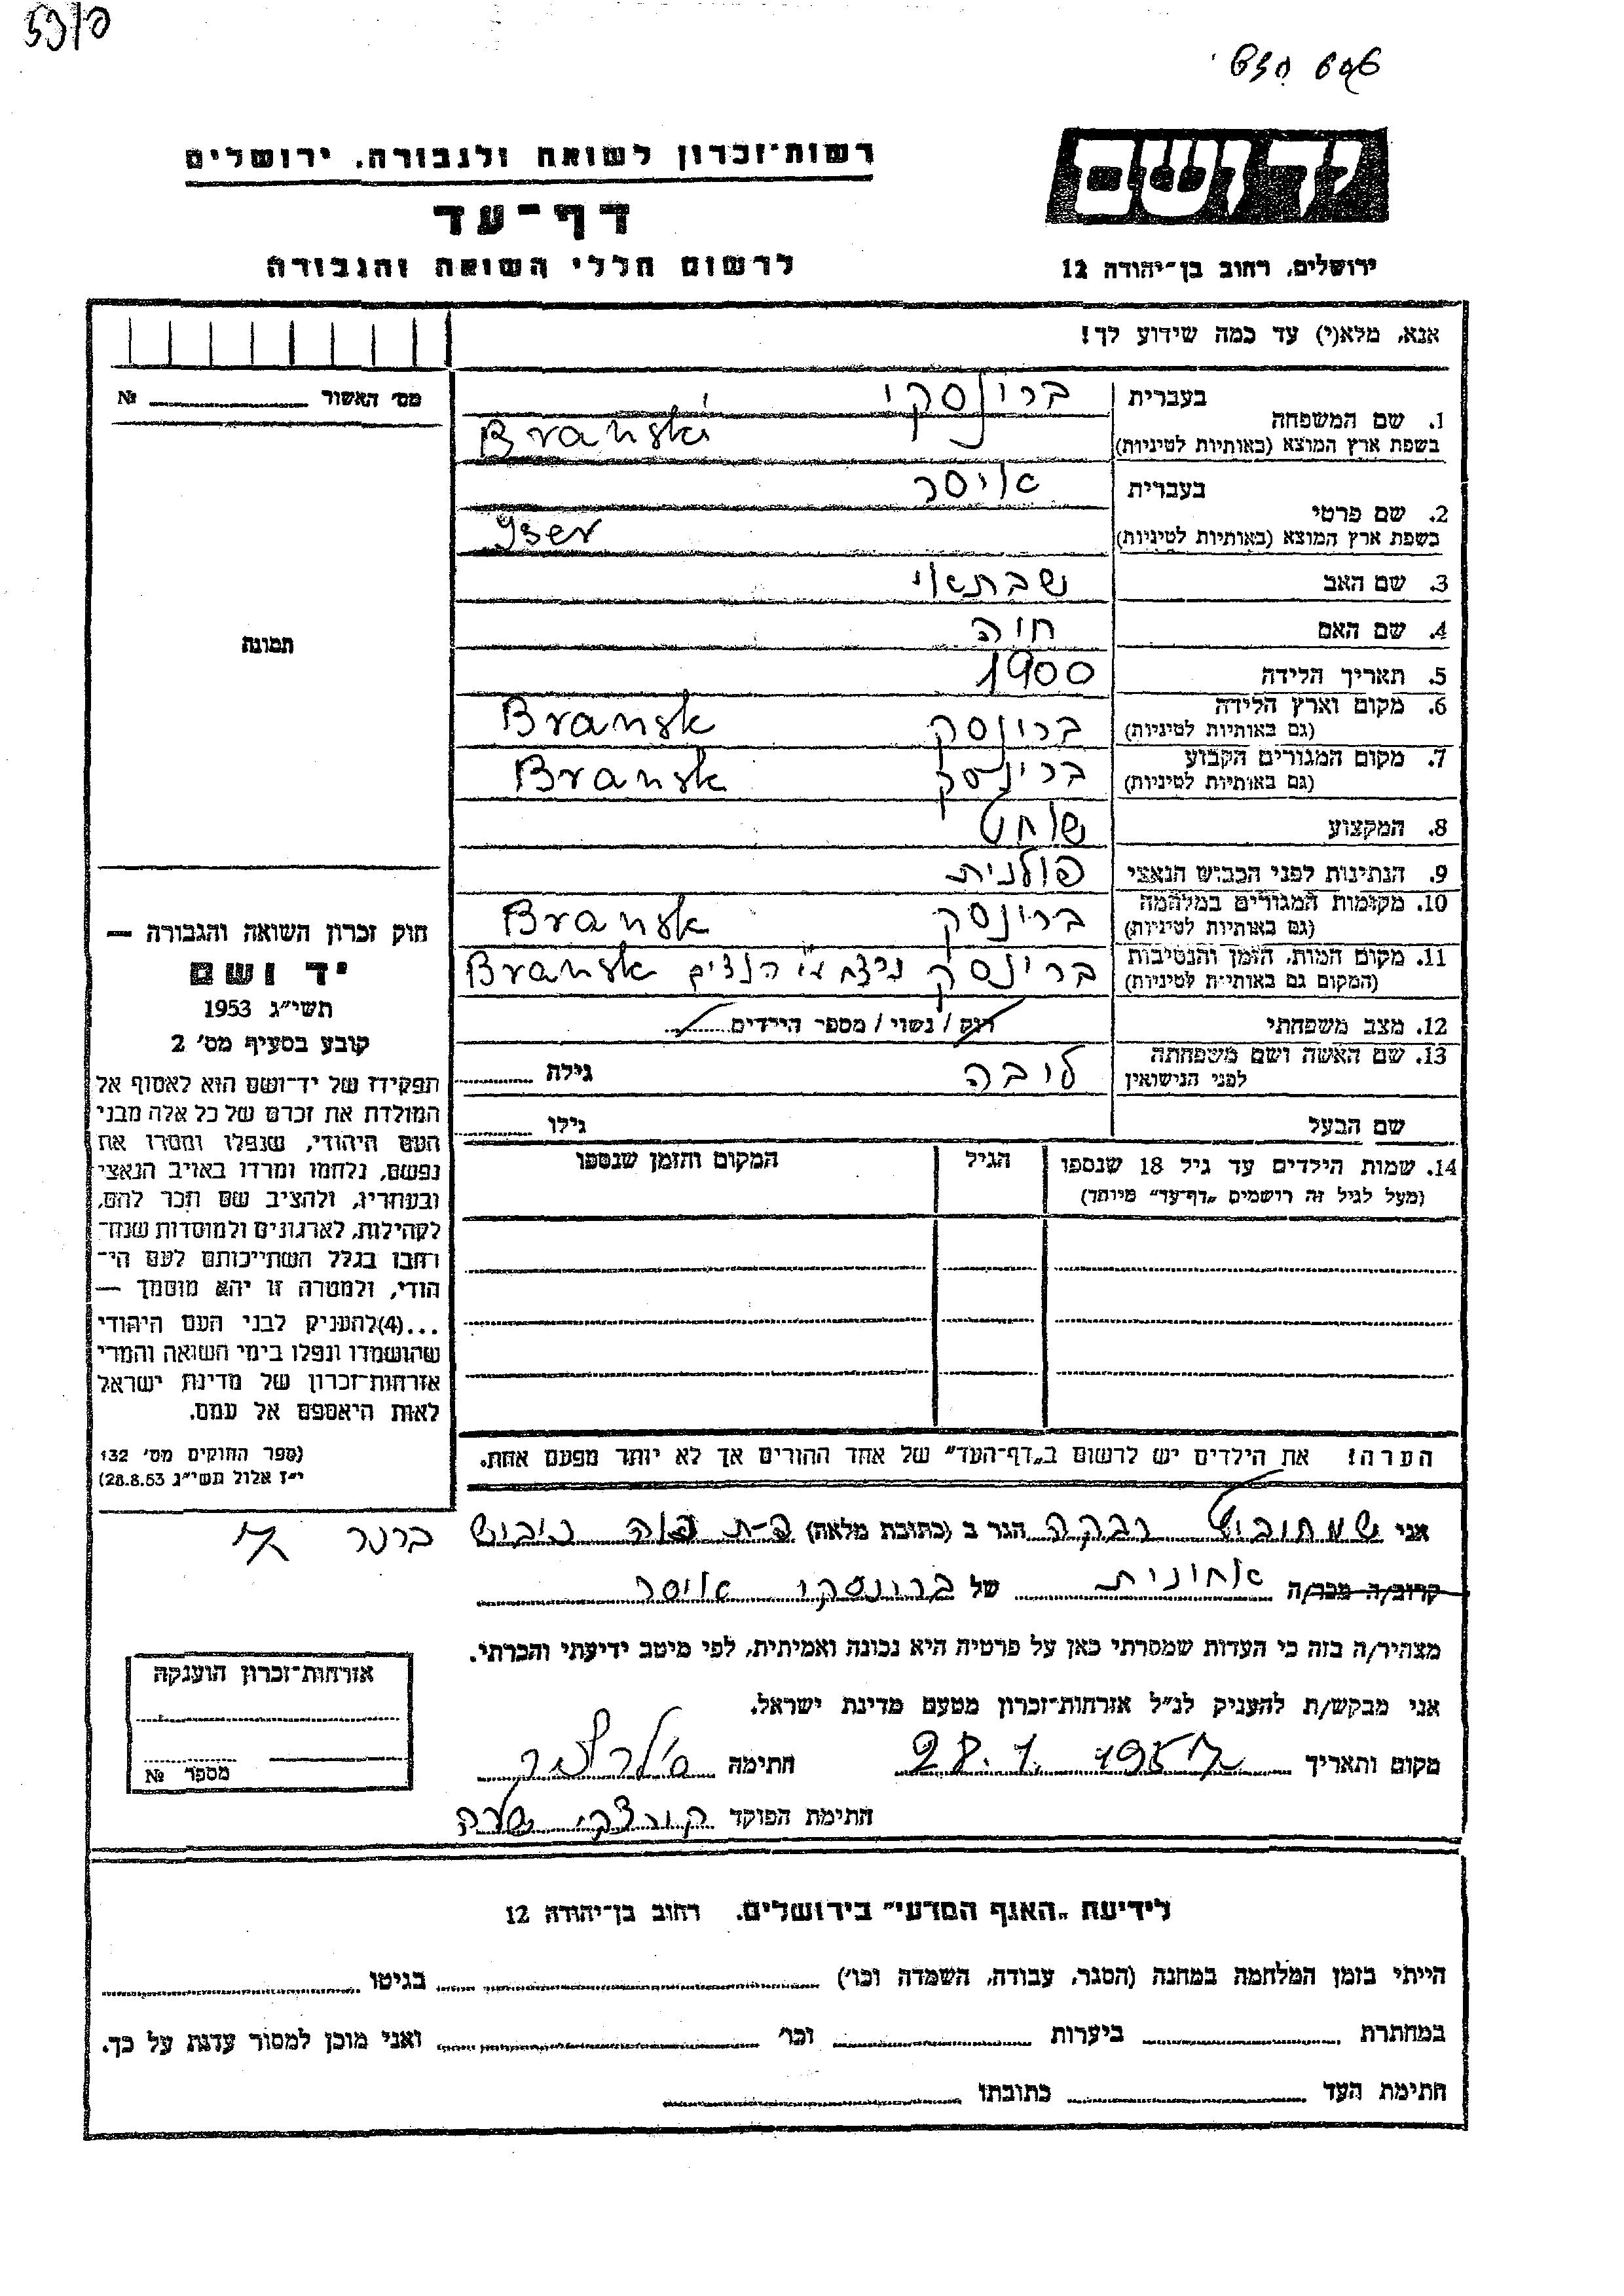 יד ושם
רשות־זכרון לשואה ולגבורה, ירושלים
דף־עד
לרשום חללי השואה והגבורה
ירושלים, רחוב בן־יהודה 12
אנא, מלא(י) עד כמה שידוע לך!
מס׳ האשור № 
1. שם המשפחה בעברית ברינסקי
בשפת ארץ המוצא (באותיות לטיניות) Branski
2. שם פרטי בעברית איסר
בשפת ארץ המוצא (באותיות לטיניות) Iser
3. שם האב שבתאי
4. שם האם חוה
5. תאריך הלידה 1900
6. מקום וארץ הלידה (גם באותיות לטיניות) ברינסק Bransk
7. מקום המגורים הקבוע (גם באותיות לטיניות) ברינסק Bransk
8. המקצוע שוחט
9. הנתינות לפני הכבוש הנאצי פולנית
10. מקומות המגורים במלחמה (גם באותיות לטיניות) ברינסק Bransk
11. מקום המות, הזמן והנסיבות (המקום גם באותיות לטיניות) ברינסק הנצים Bransk
12. מצב משפחתי רוק / נשוי / מספר הילדים
13. שם האשה ושם משפחתה לפני הנישואין לובה גילה
שם הבעל גילו
14. שמות הילדים עד גיל 18 שנספו הגיל המקום והזמן שנספו
(מעל לגיל זה רושמים „דף־עד״ מיוחד)
הערה: את הילדים יש לרשום ב„דף־העד״ של אחד ההורים אך לא יותר מפעם אחת.
תמונה
חוק זכרון השואה והגבורה —
יד ושם
תשי״ג 1953
קובע בסעיף מס׳ 2
תפקידו של יד־ושם הוא לאסוף אל
המולדת את זכרם של כל אלה מבני
העם היהודי, שנפלו ומסרו את
נפשם, נלחמו ומרדו באויב הנאצי
ובעוזריו, ולהציב שם וזכר להם,
לקהילות, לארגונים ולמוסדות שנח־
רבו בגלל השתייכותם לעם הי־
הודי, ולמטרה זו יהא מוסמך —
...(4) להעניק לבני העם היהודי
שהושמדו ונפלו בימי השואה והמרי
אזרחות־זכרון של מדינת ישראל
לאות היאספם אל עמם.
(ספר החוקים מס׳ 132
י״ז אלול תשי״ג 28.8.53)
אני רבקה הגר ב (כתובת מלאה) ברנר
קרוב/ה מכר/ה אחונית של ברונסקי איסר
מצהיר/ה בזה כי העדות שמסרתי כאן על פרטיה היא נכונה ואמיתית, לפי מיטב ידיעתי והכרתי.
אני מבקש/ת להעניק לנ״ל אזרחות־זכרון מטעם מדינת ישראל.
מקום ותאריך 28.1.1957 חתימה
חתימת הפוקד
אזרחות־זכרון הוענקה
מספר №
לידיעת „האגף המדעי״ בירושלים, רחוב בן־יהודה 12
הייתי בזמן המלחמה במחנה (הסגר, עבודה, השמדה וכו׳) בגיטו
במחתרת ביערות וכו׳ ואני מוכן למסור עדות על כך.
חתימת העד כתובתו